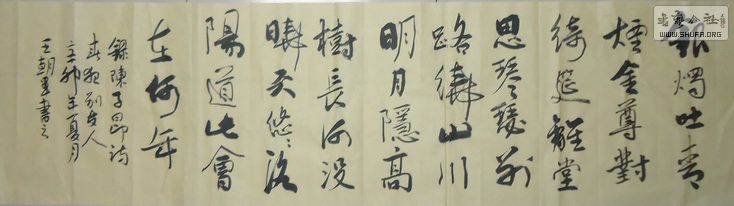 書藝公社
WWW.SHUFA.ORG
銀燭吐青
煙金尊對
綺筵離堂
思琴瑟别
路繞山川
明月隱高
樹長河没
曉天悠〻洛
陽道此會
在何年
錄陳子昂詩
春夜别友人
辛卯年夏月
王朝書之